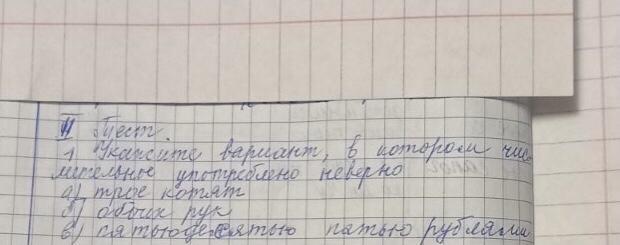 II Тест.
1 Укажите вариант, в котором чис-
лительное употреблено неверно
а) трое котят
б) обоих рук
в) пятьюдесятью пятью рублями